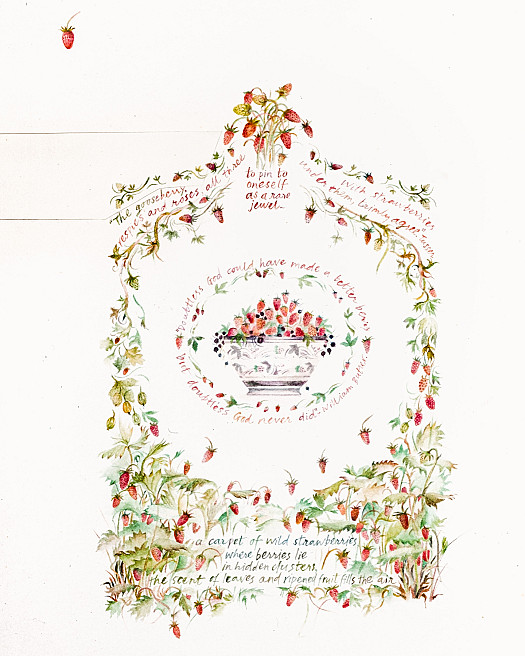 The gooseberry,
respies and roses, all three
With strawberries
under them trimly agree Tusser
to pin to
oneself
as a rare
jewel
Doubtless God could have made a better berry
but doubtless God never did William Butler
a carpet of wild strawberries
where berries lie
in hidden clusters,
the scent of leaves and ripened fruit fills the air